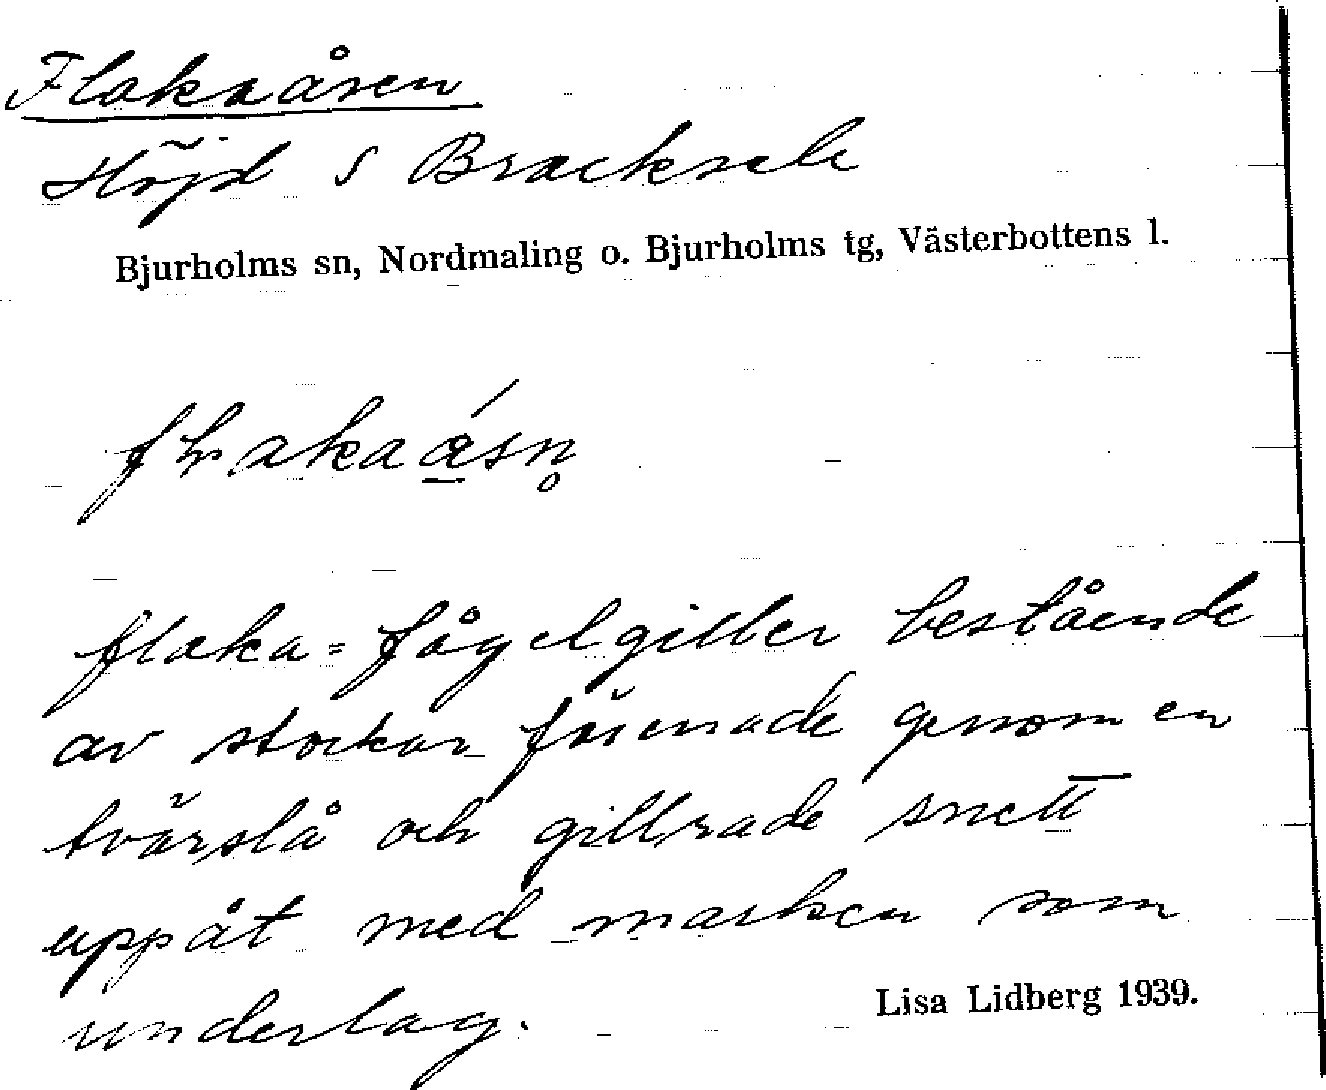 Flakaåsen
Höjd S Bracksele
Bjurholms sn, Nordmaling o. Bjurholms tg, Västerbottens l.
flaka = fågelgiller bestående
av stockar förenade genom en
tvärslå och gillrade snett
uppåt med marken som
underlag.
Lisa Lidberg 1939.